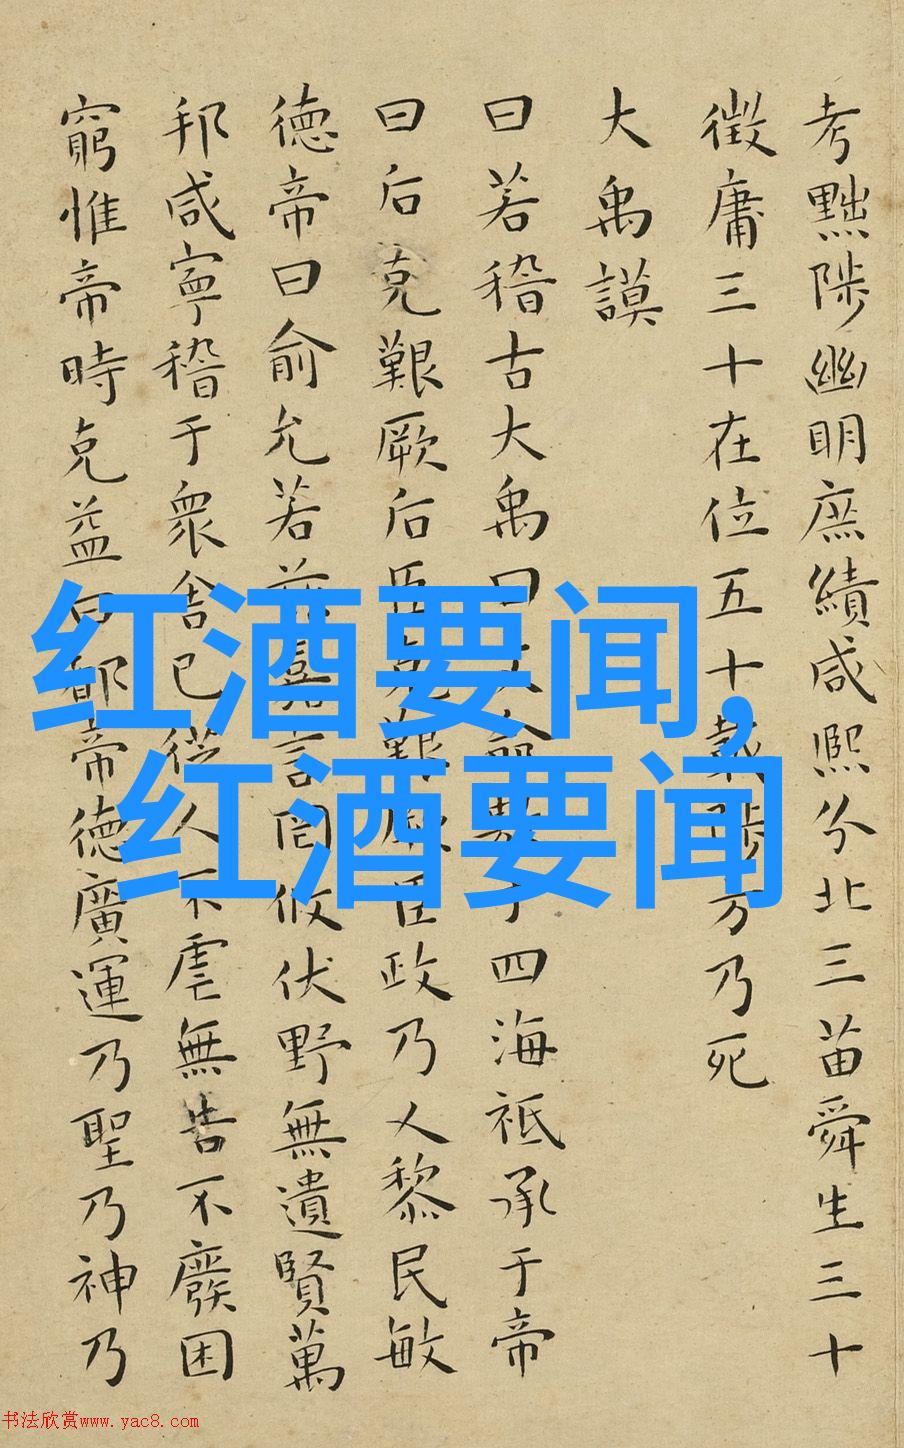 考黜陟幽明庶績咸熙分北三苗舜生三十
徵庸三十在位五十載陟方乃死
大禹謨
曰若稽古大禹曰文命敷于四海祗承于帝
曰后克艱厥后臣克艱厥臣政乃乂黎民敏
德帝曰俞允若茲嘉言罔攸伏野無遺賢萬
邦咸寧稽于衆舍已從人不虐無告不廢困
窮惟帝時克益曰都帝德廣運乃聖乃神乃
红酒要闻,
红酒要闻
书法欣赏www.yac8.com